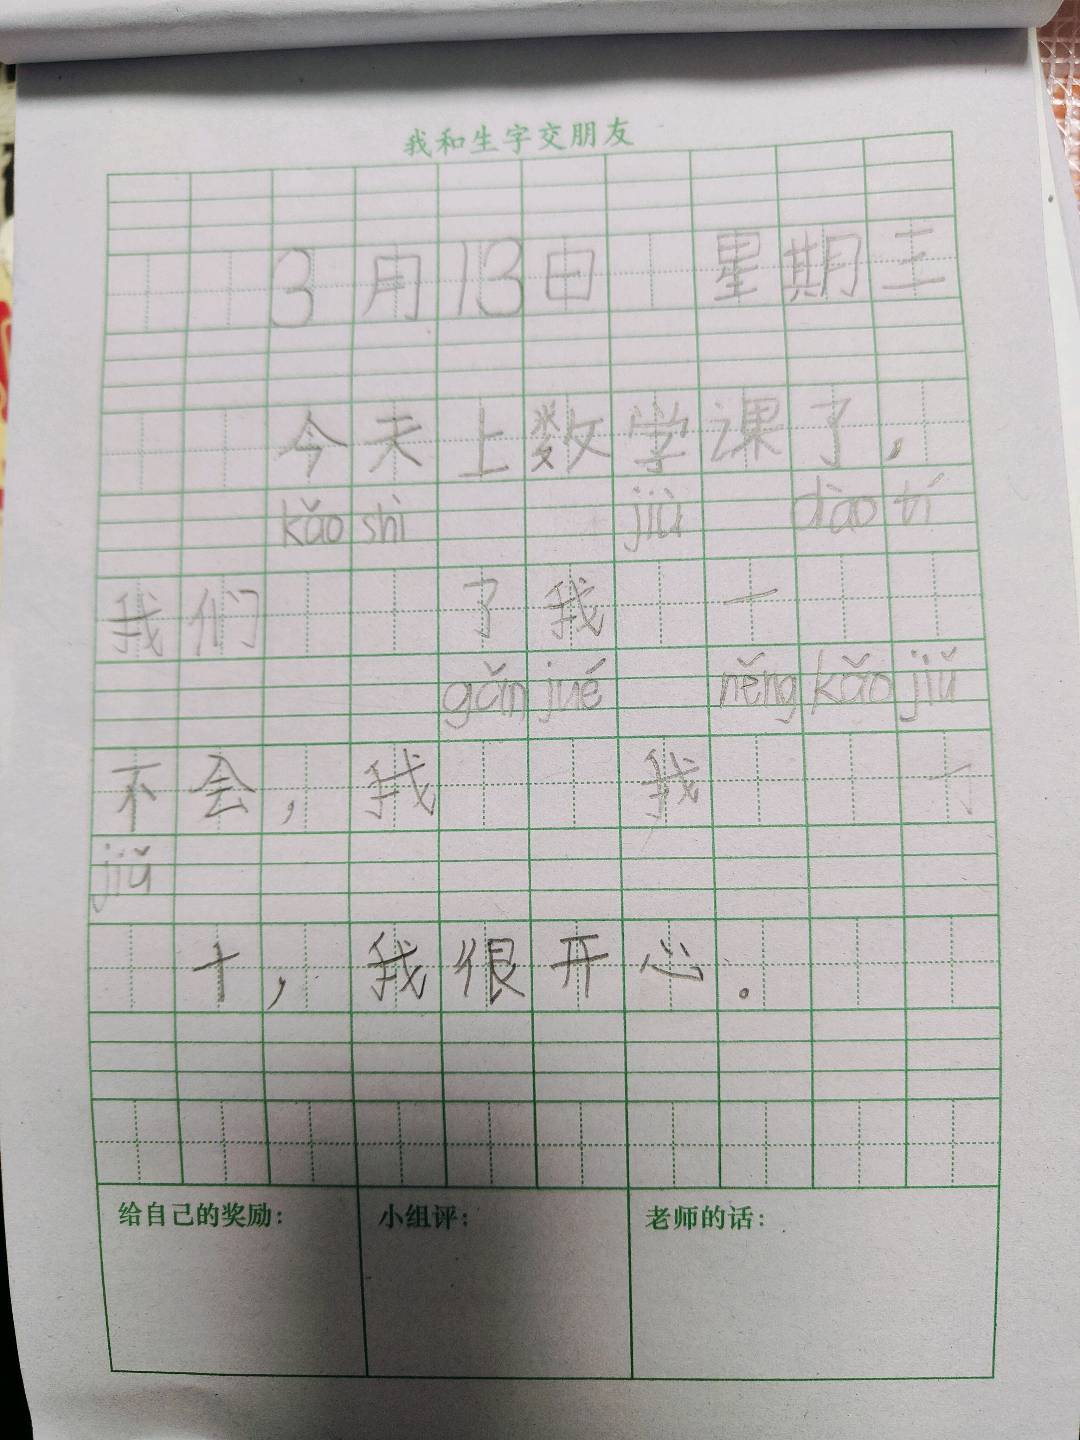 我和生字交朋友
3月13日 星期三
今天上数学课了，
kǎo shì jiù dào tí
我们 了我 一
gǎn jué něng kǎo jiǔ
不会，我 我
jiǔ
十，我很开心。
给自己的奖励： 小组评： 老师的话：